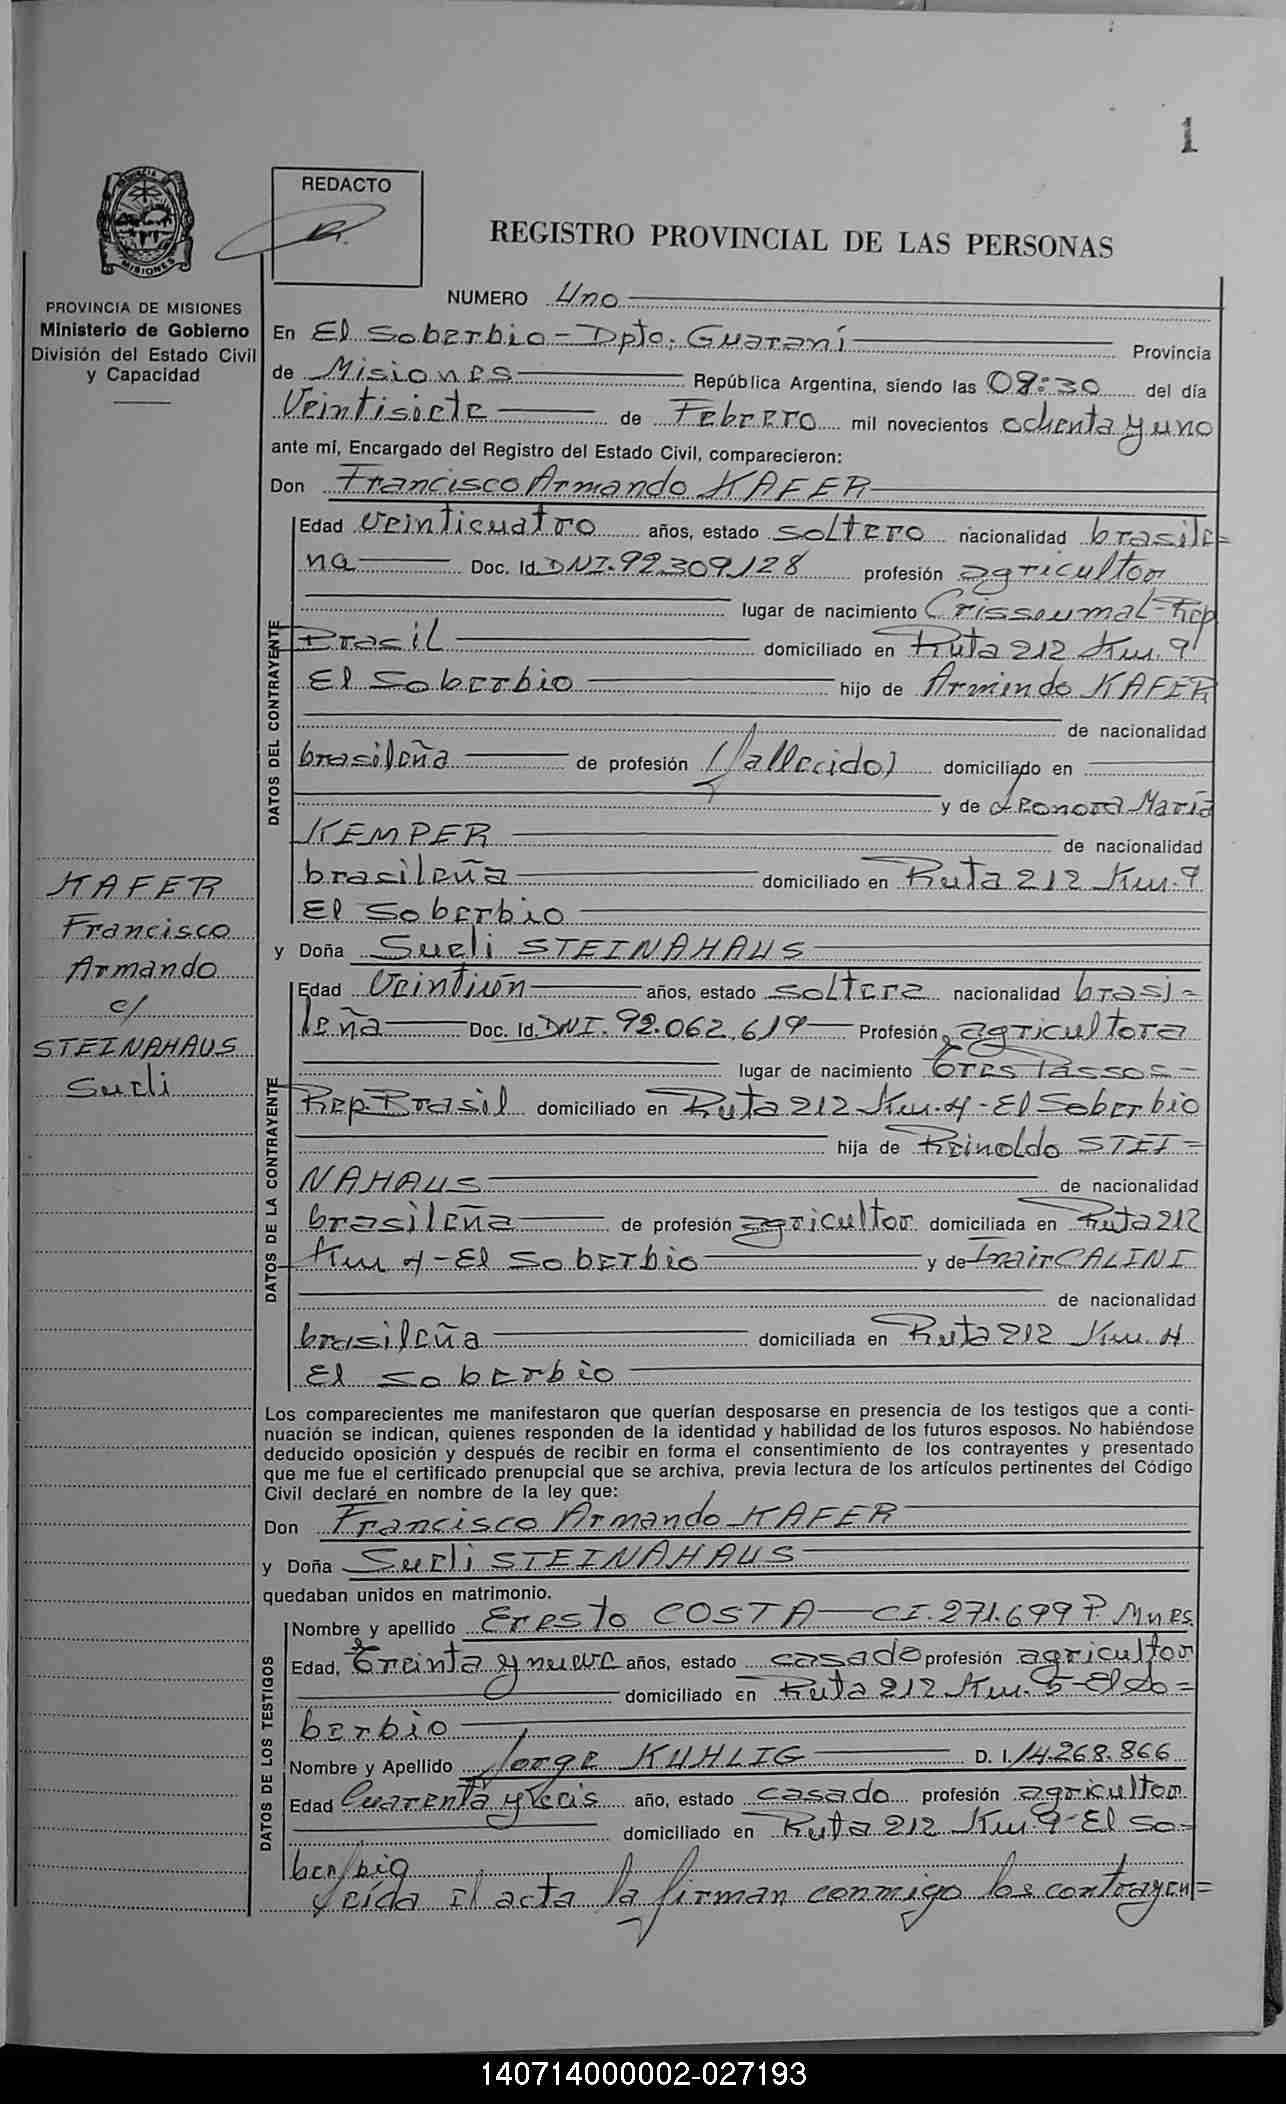 1
REDACTO
REGISTRO PROVINCIAL DE LAS PERSONAS
PROVINCIA DE MISIONES
Ministerio de Gobierno
División del Estado Civil
y Capacidad
NUMERO Uno
En El Soberbio - Dpto. Guaraní Provincia
de Misiones República Argentina, siendo las 08:30 del día
Veintisiete de Febrero mil novecientos ochenta y uno
ante mí, Encargado del Registro del Estado Civil, comparecieron:
Don Francisco Armando KAFER
DATOS DEL CONTRAYENTE
Edad Veinticuatro años, estado soltero nacionalidad brasile=
na Doc. Id. DNI. 92.309.128 profesión agricultor
lugar de nacimiento Crissoumal-Rep
Brasil domiciliado en Ruta 212 Km. 9
El Soberbio hijo de Armindo KAFER
de nacionalidad
brasileña de profesión (fallecido) domiciliado en
y de Leonora María
KEMPER de nacionalidad
brasileña domiciliado en Ruta 212 Km. 9
El Soberbio
KAFER
Francisco
Armando
c/
STEINAHAUS
Sueli
y Doña Sueli STEINAHAUS
DATOS DE LA CONTRAYENTE
Edad Veintiún años, estado soltera nacionalidad brasi=
leña Doc. Id. DNI. 92.062.619 Profesión agricultora
lugar de nacimiento Tres Passos-
Rep Brasil domiciliado en Ruta 212 Km. 4 - El Soberbio
hija de Reinoldo STEI=
NAHAUS de nacionalidad
brasileña de profesión agricultor domiciliada en Ruta 212
Km 4 - El Soberbio y de Inair CALINI
de nacionalidad
brasileña domiciliada en Ruta 212 Km. 4
El Soberbio
Los comparecientes me manifestaron que querían desposarse en presencia de los testigos que a conti-
nuación se indican, quienes responden de la identidad y habilidad de los futuros esposos. No habiéndose
deducido oposición y después de recibir en forma el consentimiento de los contrayentes y presentado
que me fue el certificado prenupcial que se archiva, previa lectura de los artículos pertinentes del Código
Civil declaré en nombre de la ley que:
Don Francisco Armando KAFER
y Doña Sueli STEINAHAUS
quedaban unidos en matrimonio.
DATOS DE LOS TESTIGOS
Nombre y apellido Eresto COSTA - CI. 271.699 P. Mnes
Edad, Treinta y nueve años, estado casado profesión agricultor
domiciliado en Ruta 212 Km. 5 - El So=
berbio
Nombre y Apellido Jorge KUHLIG D. I. 14.268.866
Edad Cuarenta y seis año, estado casado profesión agricultor
domiciliado en Ruta 212 Km. 9 - El So-
berbio
Leída el acta la firman conmigo los contrayen=
140714000002-027193